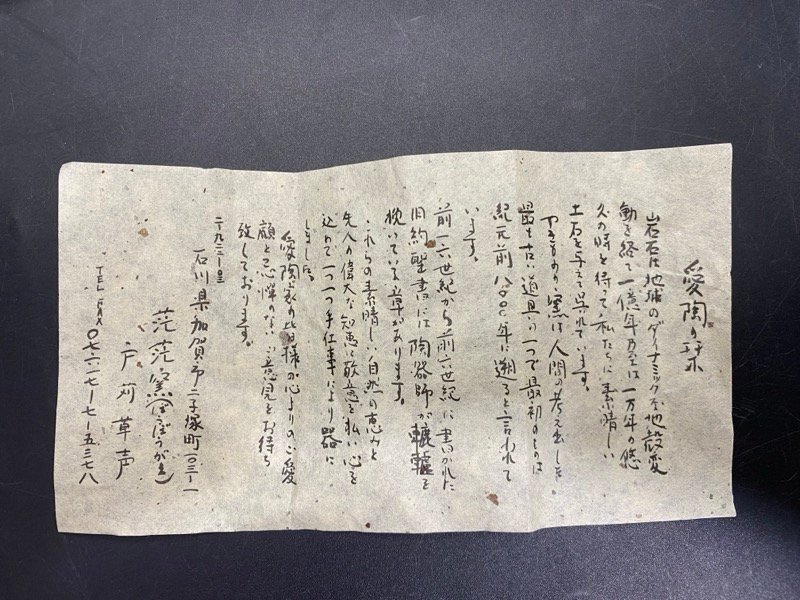 愛陶の栞
岩石は地球のダイナミックな地殻変
動を経て一億年乃至は一万年の悠
久の時を待って私たちに素晴しい
土石を与えて呉れています。
やきものの窯は人間の考え出した
最も古い道具の一つで最初のものは
紀元前八〇〇〇年に遡ると言われて
います。
前一六世紀から前六世紀に書かれた
旧約聖書には陶器師が轆轤を
挽いている章があります。
これらの素晴しい自然の恵みと
先人の偉大な知恵に敬意を払い心を
込めて一つ一つ手仕事により器に
しました。
愛陶家の皆様の心よりのご愛
顧と忌憚のないご意見をお待ち
致しております。
〒九二二
石川県加賀市二子塚町一〇三ー一
茫茫窯
戸苅草声
TEL FAX 〇七六一七ー七ー五三七八